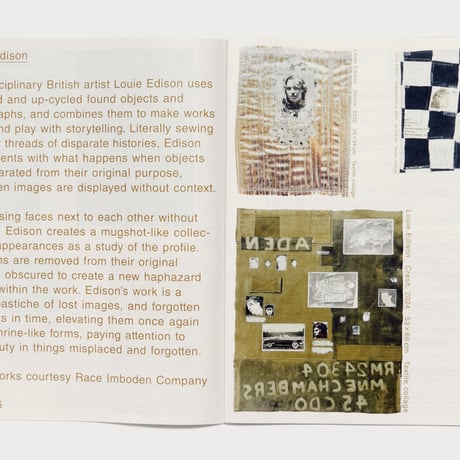 dison
ciplinary British artist Louie Edison uses
d and up-cycled found objects and
aphs, and combines them to make works
nd play with storytelling. Literally sewing
r threads of disparate histories, Edison
ents with what happens when objects
arated from their original purpose,
en images are displayed without context.
sing faces next to each other without
, Edison creates a mugshot-like collec-
appearances as a study of the profile.
ns are removed from their original
, obscured to create a new haphazard
within the work. Edison's work is a
pastiche of lost images, and forgotten
ts in time, elevating them once again
hrine-like forms, paying attention to
uty in things misplaced and forgotten.
orks courtesy Race Imboden Company
Louie Edison
Textile collage
Louie Edison Crash, 2021 53 x 66cm Textile collage
ADEN
RM24304
MNECHAMBERS
4SCDO